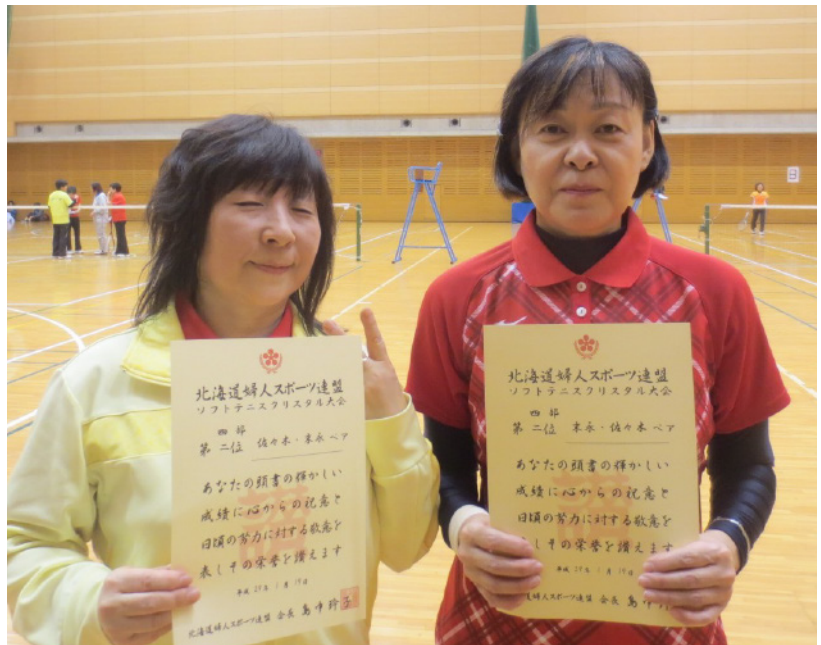 北海道婦人スポーツ連盟
ソフトテニスクリスタル大会
四部
第二位 佐々木・末永ペア
あなたの頭書の輝かしい
成績に心からの祝意と
日頃の努力に対する敬意を
表しその栄誉を讃えます
北海道婦人スポーツ連盟 会長
北海道婦人スポーツ連盟
ソフトテニスクリスタル大会
四部
第二位 末永・佐々木ペア
あなたの頭書の輝かしい
成績に心からの祝意と
日頃の努力に対する敬意を
表しその栄誉を讃えます
婦人スポーツ連盟 会長